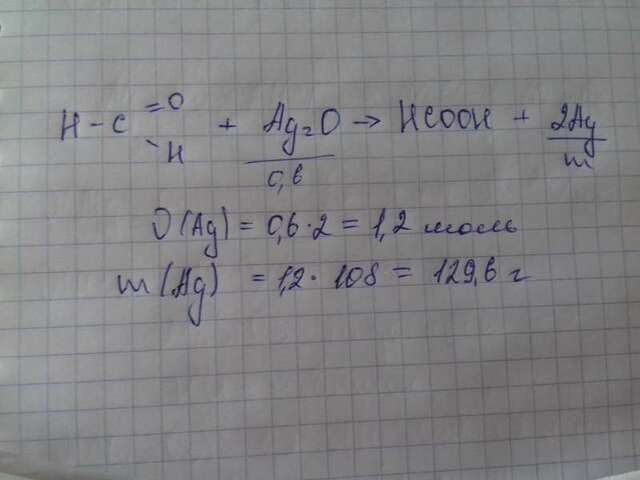 H-C =O \H + Ag2O → HCOOH + 2Ag
0,6 m
υ(Ag) = 0,6·2 = 1,2 моль
m(Ag) = 1,2· 108 = 129,6 г